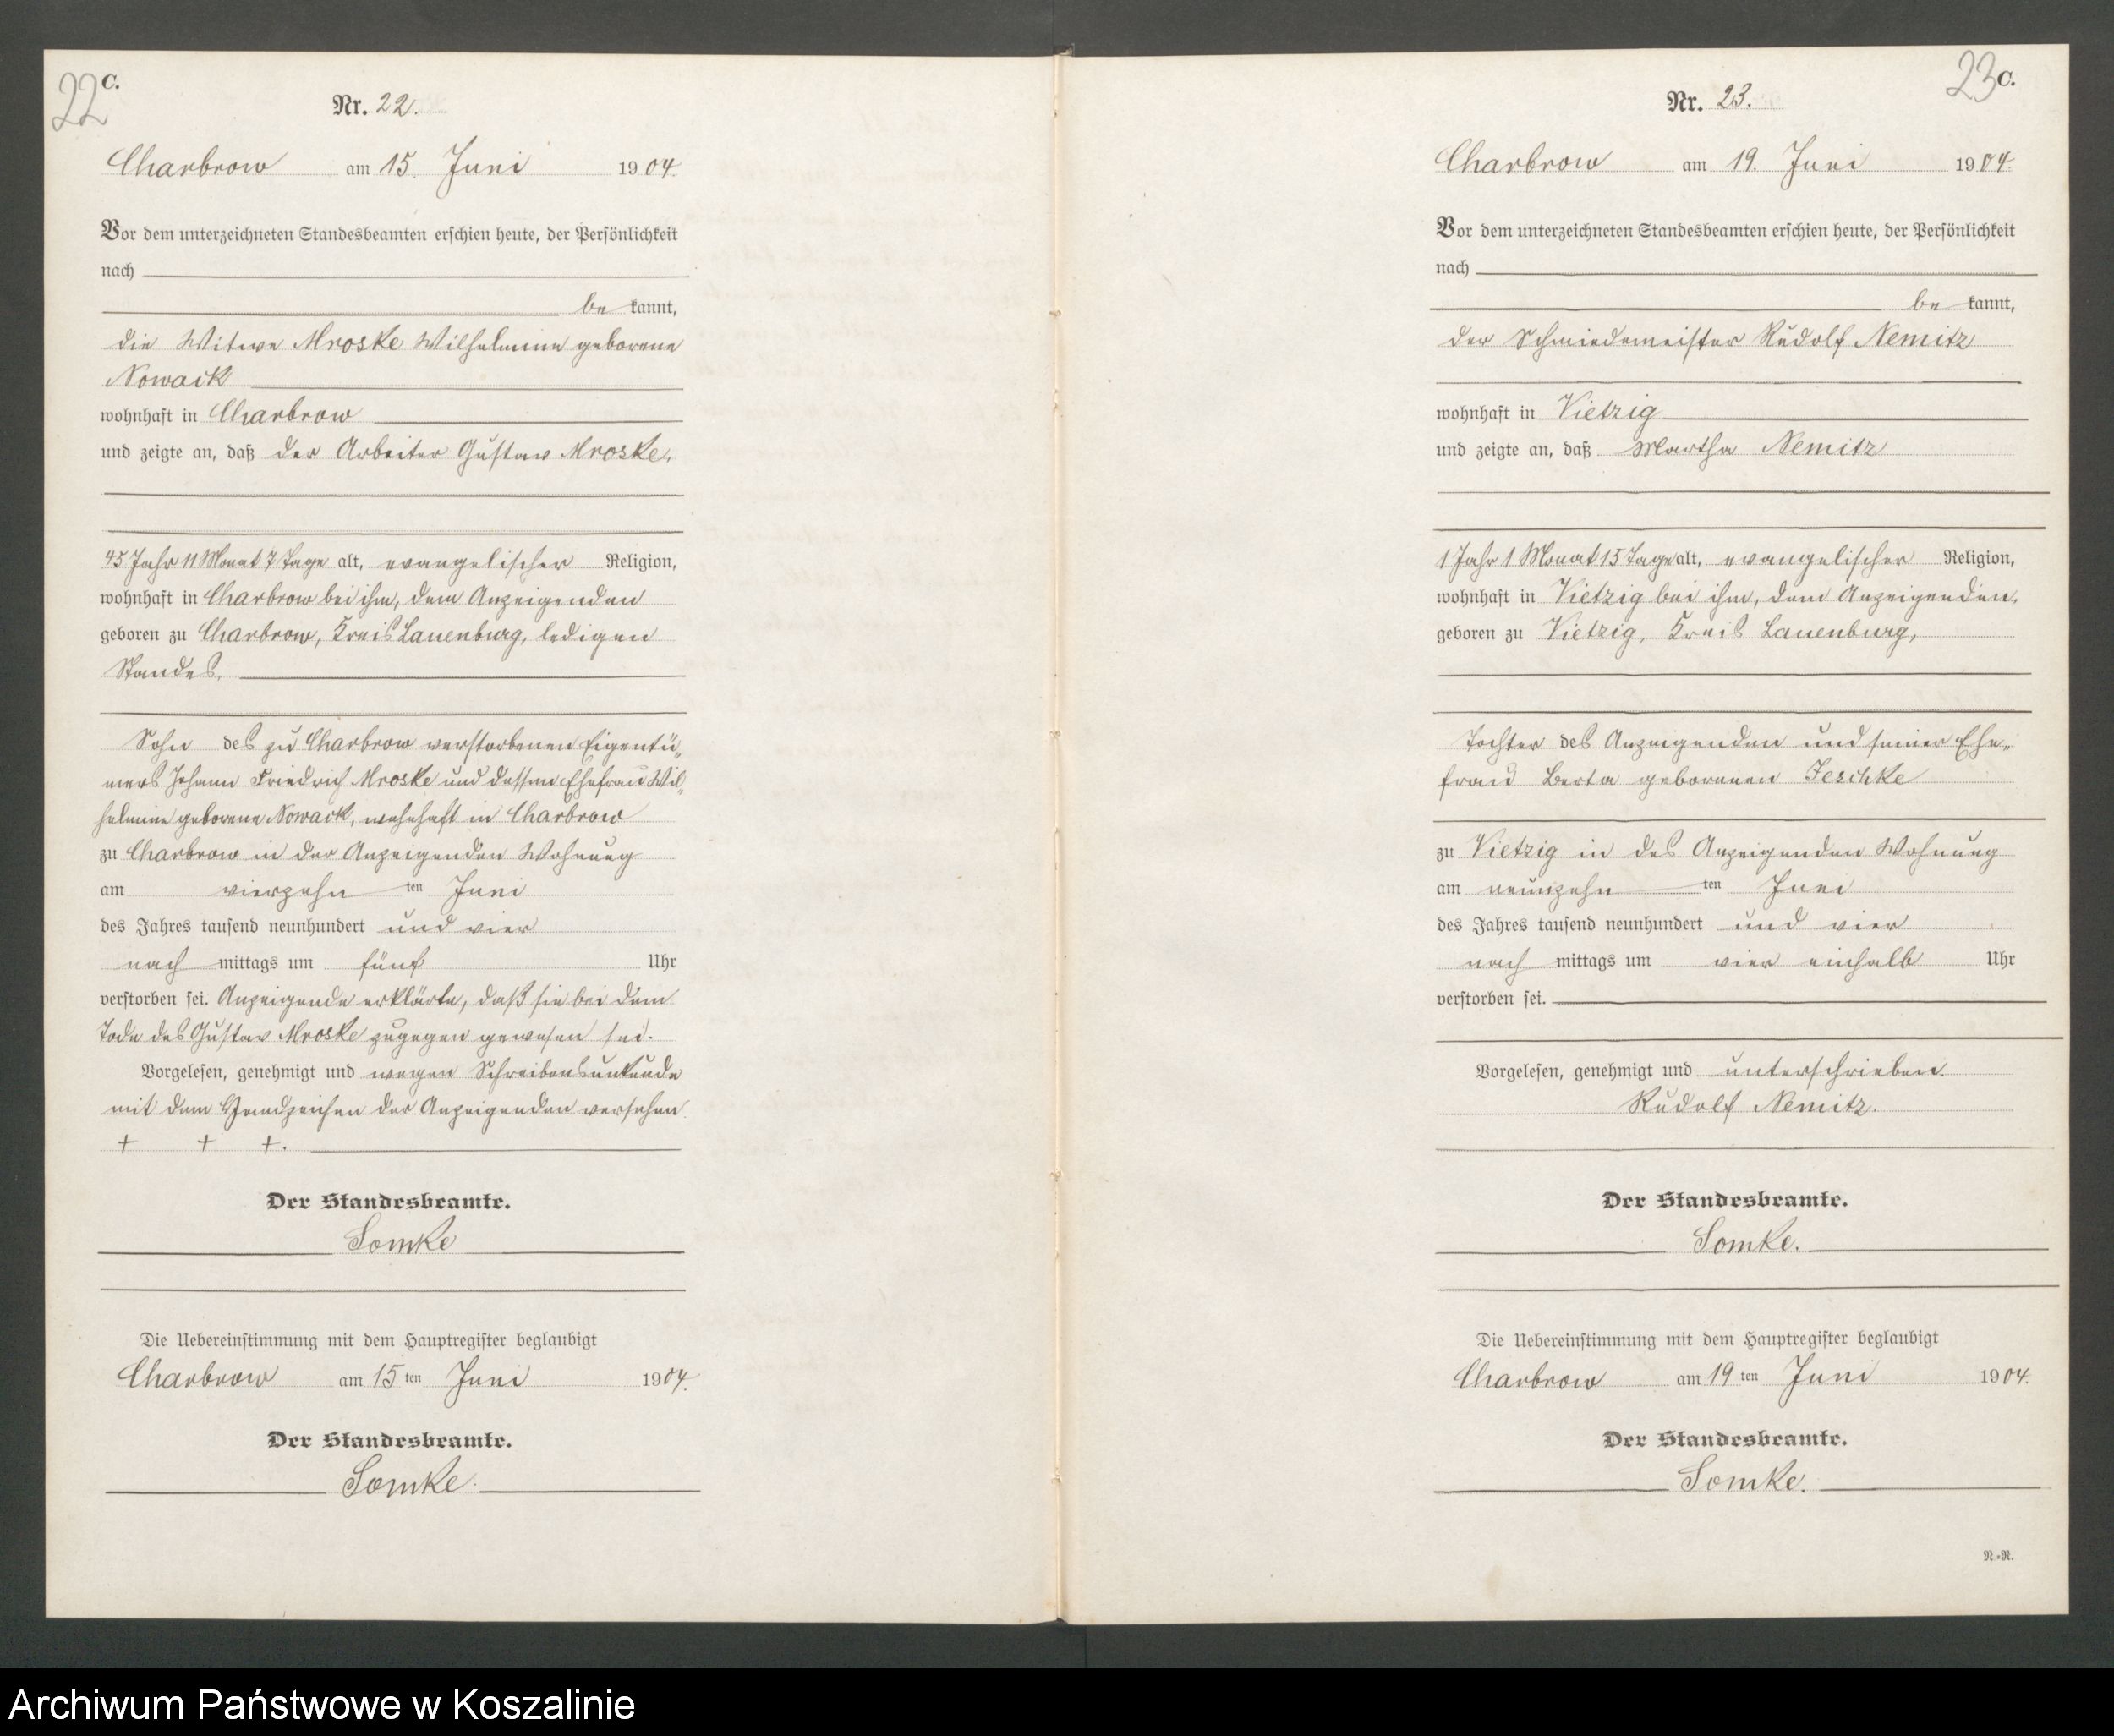 22
C.
Nr. 22.
Charbrow am 15. Juni 1904.
Vor dem unterzeichneten Standesbeamten erschien heute, der Persönlichkeit
nach
be kannt,
die Witwe Mroske Wilhelmine geborene
Nowack
wohnhaft in Charbrow
und zeigte an, daß der Arbeiter Gustav Mroske,
45 Jahr 11 Monat 7 Tage alt, evangelischer Religion,
wohnhaft in Charbrow bei ihm, dem Anzeigenden
geboren zu Charbrow, Kreis Lauenburg, ledigen
Standes,
Sohn des zu Charbrow verstorbenen Eigentü-
mers Johann Friedrich Mroske und dessen Ehefrau Wil-
helmine geborene Nowack, wohnhaft in Charbrow
zu Charbrow in der Anzeigenden Wohnung
am vierzehn ten Juni
des Jahres tausend neunhundert und vier
nach mittags um fünf Uhr
verstorben sei. Anzeigende erklärte, daß sie bei dem
Tode des Gustav Mroske zugegen gewesen sei.
Vorgelesen, genehmigt und wegen Schreibensunkunde
mit dem Handzeichen der Anzeigenden versehen
+ + +.
Der Standesbeamte.
Somke
Die Uebereinstimmung mit dem Hauptregister beglaubigt
Charbrow am 15 ten Juni 1904.
Der Standesbeamte.
Somke.
23
C.
Nr. 23.
Charbrow am 19. Juni 1904.
Vor dem unterzeichneten Standesbeamten erschien heute, der Persönlichkeit
nach
be kannt,
der Schmiedemeister Rudolf Nemitz
wohnhaft in Vietzig
und zeigte an, daß Martha Nemitz
1 Jahr 1 Monat 15 Tage alt, evangelischer Religion,
wohnhaft in Vietzig bei ihm, dem Anzeigenden,
geboren zu Vietzig, Kreis Lauenburg,
Tochter des Anzeigenden und seiner Ehe-
frau Berta geborenen Jeschke
zu Vietzig in des Anzeigenden Wohnung
am neunzehn ten Juni
des Jahres tausend neunhundert und vier
nach mittags um vier einhalb Uhr
verstorben sei.
Vorgelesen, genehmigt und unterschrieben.
Rudolf Nemitz.
Der Standesbeamte.
Somke.
Die Uebereinstimmung mit dem Hauptregister beglaubigt
Charbrow am 19 ten Juni 1904.
Der Standesbeamte.
Somke.
N.N.
Archiwum Państwowe w Koszalinie